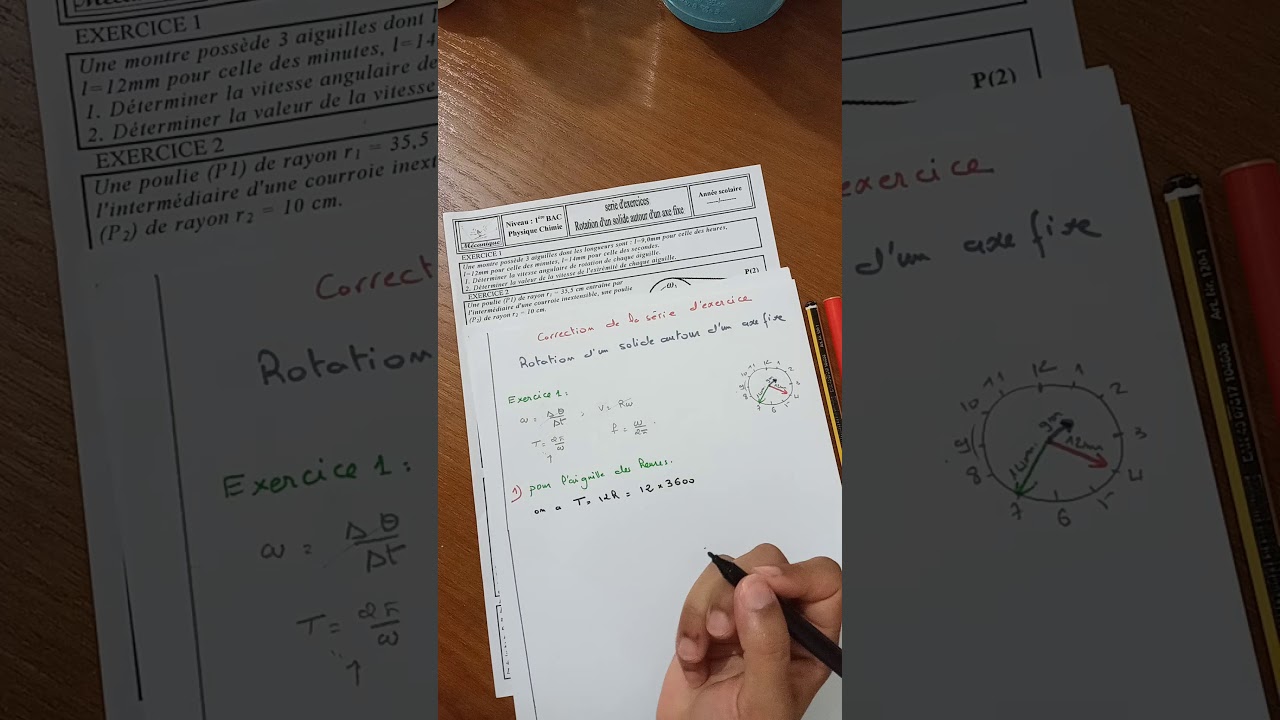 Mécanique
Niveau : 1ère BAC
Physique Chimie
serie d'exercices
Rotation d'un solide autour d'un axe fixe
Année scolaire
EXERCICE 1
Une montre possède 3 aiguilles dont les longueurs sont : l=9,0mm pour celle des heures,
l=12mm pour celle des minutes, l=14mm pour celle des secondes.
1. Déterminer la vitesse angulaire de rotation de chaque aiguille.
2. Déterminer la valeur de la vitesse de l'extrémité de chaque aiguille.
EXERCICE 2
P(2)
Une poulie (P1) de rayon r1 = 35,5 cm entraîne par
l'intermédiaire d'une courroie inextensible, une poulie
(P2) de rayon r2 = 10 cm.
ω1
Correction de la série d'exercice
Rotation d'un solide autour d'un axe fixe
Exercice 1 :
ω = Δθ/Δt ; V = Rω
T = 2π/ω f = ω/2π
1) pour l'aiguille des heures.
on a T = 12h = 12 × 3600
12 1 2 3 4 5 6 7 8 9 10 11
EXERCICE 1
Une montre possède 3 aiguilles dont
l=12mm pour celle des minutes, l=14
1. Déterminer la vitesse angulaire de
2. Déterminer la valeur de la vitesse
EXERCICE 2
Une poulie (P1) de rayon r1 = 35,5
l'intermédiaire d'une courroie inext
(P2) de rayon r2 = 10 cm.
Correct
Rotation
Exercice 1 :
ω = Δθ/Δt
T = 2π/ω
P(2)
exercice
d'un axe fixe
11 12 1 2 3 4 5 6 7 8 9 10